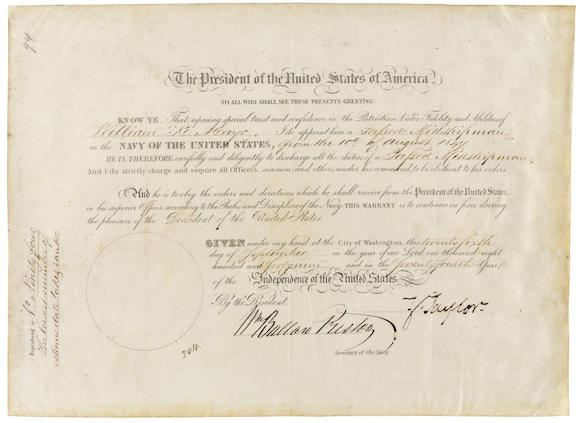 94
The President of the United States of America,
TO ALL WHO SHALL SEE THESE PRESENTS GREETING
KNOW YE, That reposing special trust and confidence in the Patriotism Valor Fidelity and Abilities of
William K. Mayo, I do appoint him a Passed Midshipman
in the NAVY OF THE UNITED STATES, from the 10th of August 1847.
HE IS, THEREFORE, carefully and diligently to discharge all the duties of a Passed Midshipman,
And I do strictly charge and require all Officers, seamen and others, under his command to be obedient to his orders
And he is to obey the orders and directions which he shall receive from the President of the United States,
or his superior Officer according to the Rules and Discipline of the Navy THIS WARRANT is to continue in force during
the pleasure of the President of the United States.
GIVEN under my hand at the City of Washington, this twenty sixth
day of September in the year of our Lord one thousand eight
hundred and forty nine and in the Seventy fourth Year
of the Independence of the United States.
By the President
Z. Taylor
Wm Ballard Preston
Secretary of the Navy
Registered in No. Ninety four